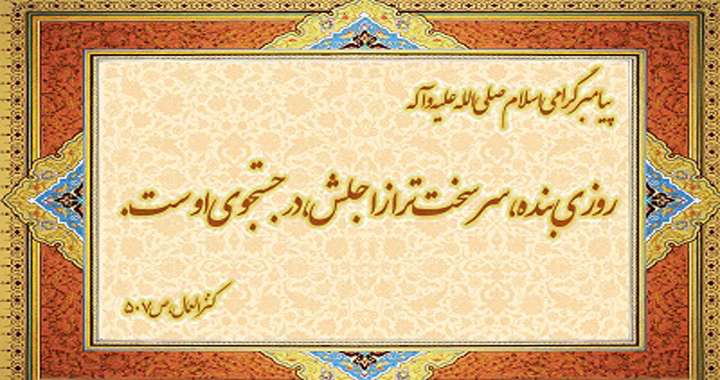 پیامبر گرامی اسلام صلی الله علیه و آله
روزی بنده، سرسخت تر از اجلش، در جستجوی اوست.
کنزالعمال، ص ۵۰۷